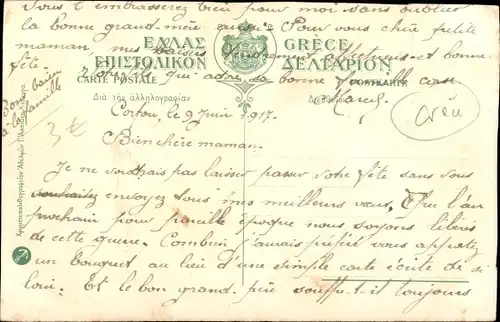 Vous l'embrasserez bien pour moi sans oublier
la bonne grand-mère aussi. Pour vous chère petite
maman, mes baisers
et bonne
fête
qui adore sa bonne
Marcel
Bons baisers
à la famille
ΕΛΛΑΣ GRÈCE
ΕΠΙΣΤΟΛΙΚΟΝ ΔΕΛΤΑΡΙΟΝ
CARTE POSTALE POSTKARTE
Διὰ τὴν ἀλληλογραφίαν
3€
Corfou, le 9 Juin 1917.
Bien chère maman.
Je ne voudrais pas laisser passer votre fête sans vous
souhaitez envoyez tous mes meilleurs vœux. Que l'an
prochain pour pareille époque nous soyons libérés
de cette guerre. Combien j'aurais préféré vous apporter
un bouquet au lieu d'une simple carte écrite de si
loin. Et le bon grand-père souffre-t-il toujours